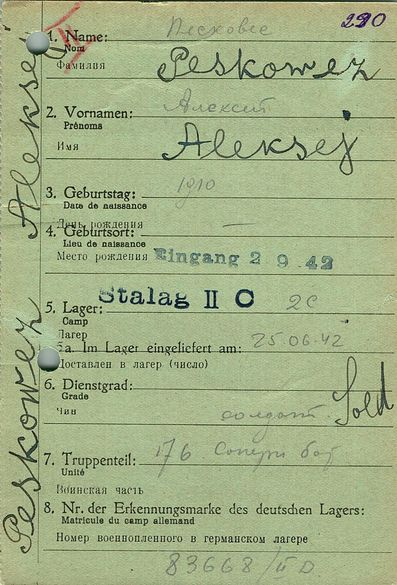 290
1. Name: Песковес
Nom
Фамилия Peskowez
2. Vornamen: Алексей
Prénoms
Имя Aleksej
3. Geburtstag: 1910
Date de naissance
День рождения
4. Geburtsort: —
Lieu de naissance
Место рождения Eingang 2 9. 42
Stalag II C 2C
5. Lager:
Camp
Лагерь
5a. Im Lager eingeliefert am: 25.06.42
Доставлен в лагерь (число)
6. Dienstgrad:
Grade
Чин солдат. Sold
7. Truppenteil: 176. Саперн бат
Unité
Воинская часть
8. Nr. der Erkennungsmarke des deutschen Lagers:
Matricule du camp allemand
Номер военнопленного в германском лагере
83668/II D
Peskowez Aleksej